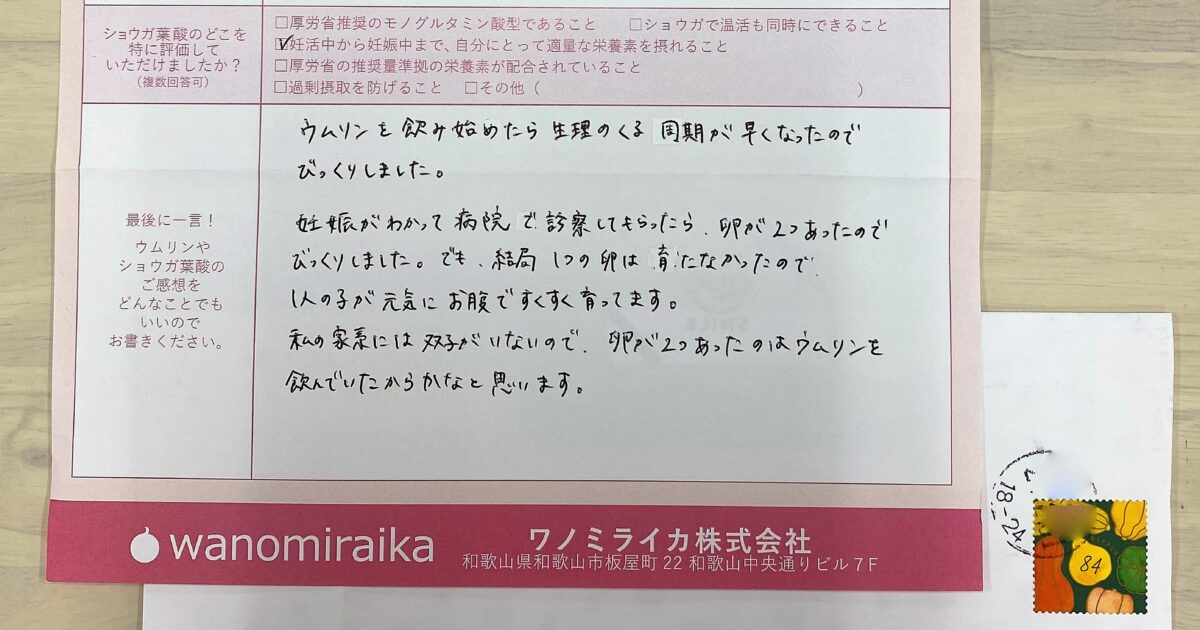 ショウガ葉酸のどこを
特に評価して
いただけましたか？
（複数回答可）
□厚労省推奨のモノグルタミン酸型であること □ショウガで温活も同時にできること
☑妊活中から妊娠中まで、自分にとって適量な栄養素を摂れること
□厚労省の推奨量準拠の栄養素が配合されていること
□過剰摂取を防げること □その他（ ）
最後に一言！
ウムリンや
ショウガ葉酸の
ご感想を
どんなことでも
いいので
お書きください。
ウムリンを飲み始めたら生理のくる周期が早くなったので
びっくりしました。
妊娠がわかって病院で診察してもらったら、卵が2つあったので
びっくりしました。でも、結局1つの卵は育たなかったので、
1人の子が元気にお腹ですくすく育ってます。
私の家系には双子がいないので、卵が2つあったのはウムリンを
飲んでいたからかなと思います。
wanomiraika
ワノミライカ株式会社
和歌山県和歌山市板屋町22 和歌山中央通りビル7F
18-24
84